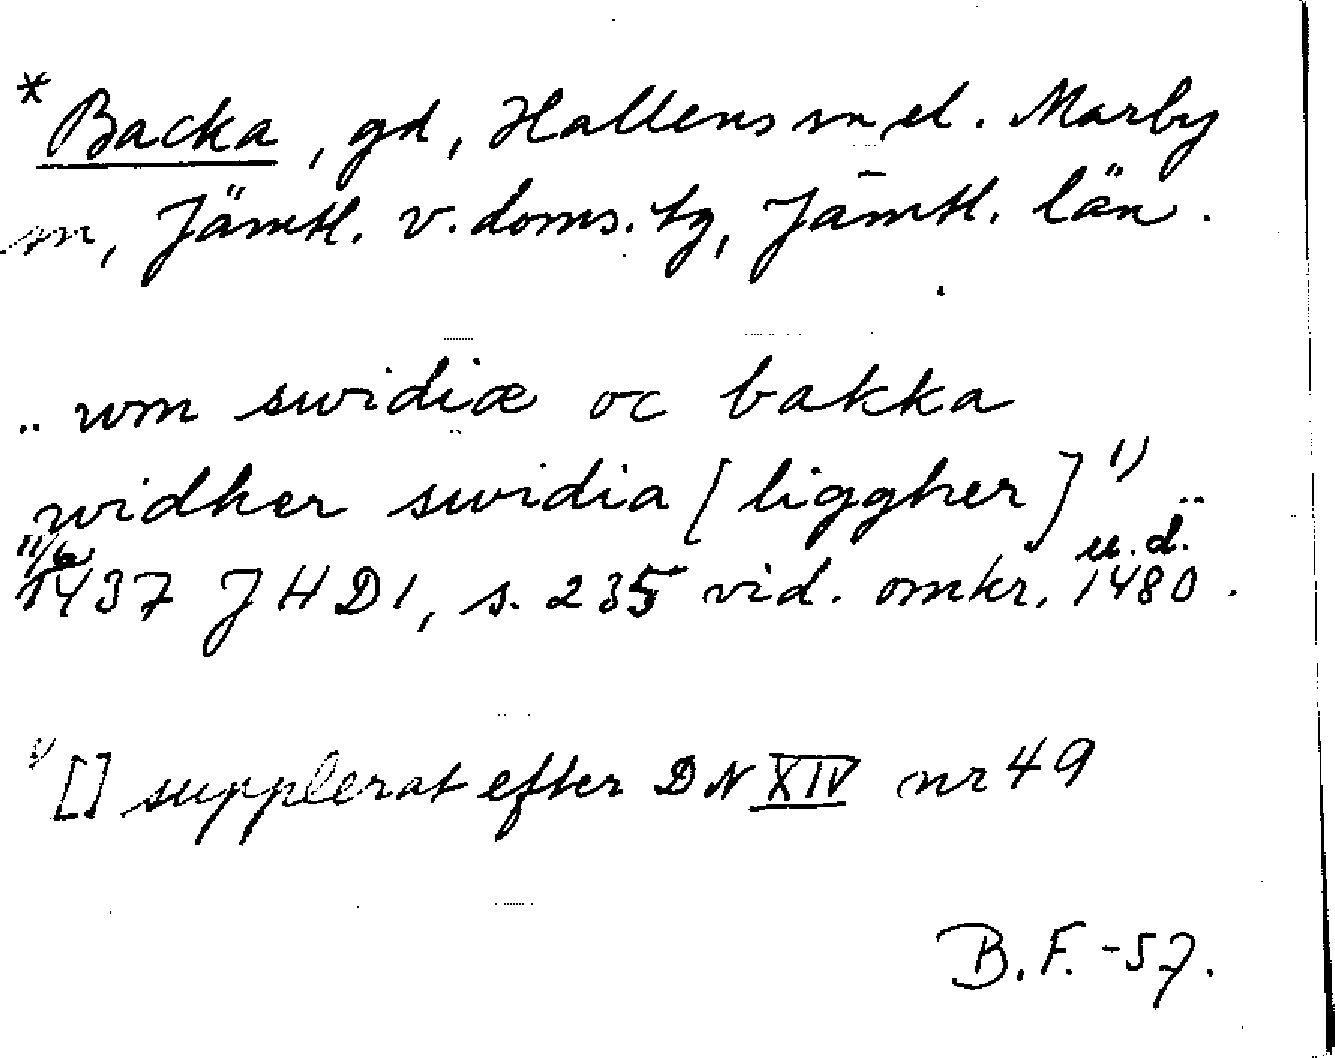 * Backa, gd, Hallens sn el. Marby
sn, Jämtl. v. doms. tg, Jämtl. län.
.. wm swidiæ oc bakka
widher swidia [ligger]¹⁾ ..
11/6 1437 JHD1, s. 235 vid. omkr. u.d. 1480.
¹⁾ [] supplerat efter DN XIV nr 49
B.F. -57.